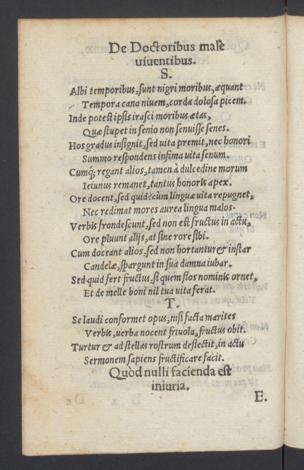 De Doctoribus male
uiuentibus.
S.
Albi temporibus, sunt nigri moribus, æquant
Tempora cana niuem, corda dolosa picem.
Inde potest ipsis irasci moribus ætas,
Quæ stupet in senio non senuisse senes.
Hos gradus insignit, sed uita premit, nec honori
Summo respondens infima uita senum.
Cumq; regant alios, tamen à dulcedine morum
Ieiunus remanet, tantus honoris apex.
Ore docent, sed quid? cum linguæ uita repugnet,
Nec redimat mores aurea lingua malos.
Verbis frondescunt, sed non est fructus in actu,
Ore pluunt alijs, at sine rore sibi.
Cum doceant alios, sed non hortantur instar
Candelæ, spargunt in sua damna iubar.
Sed quid fert fructus, si quem flos nominis ornet,
Et de melle boni nil sua uita ferat.
T.
Se laudi conformet opus, nisi facta marites
Verbis, uerba nocent friuola, fructus obit.
Turtur & ad stellas rostrum deflectit, in actu
Sermonem sapiens fructificare facit.
Quòd nulli facienda est
iniuria.
E.